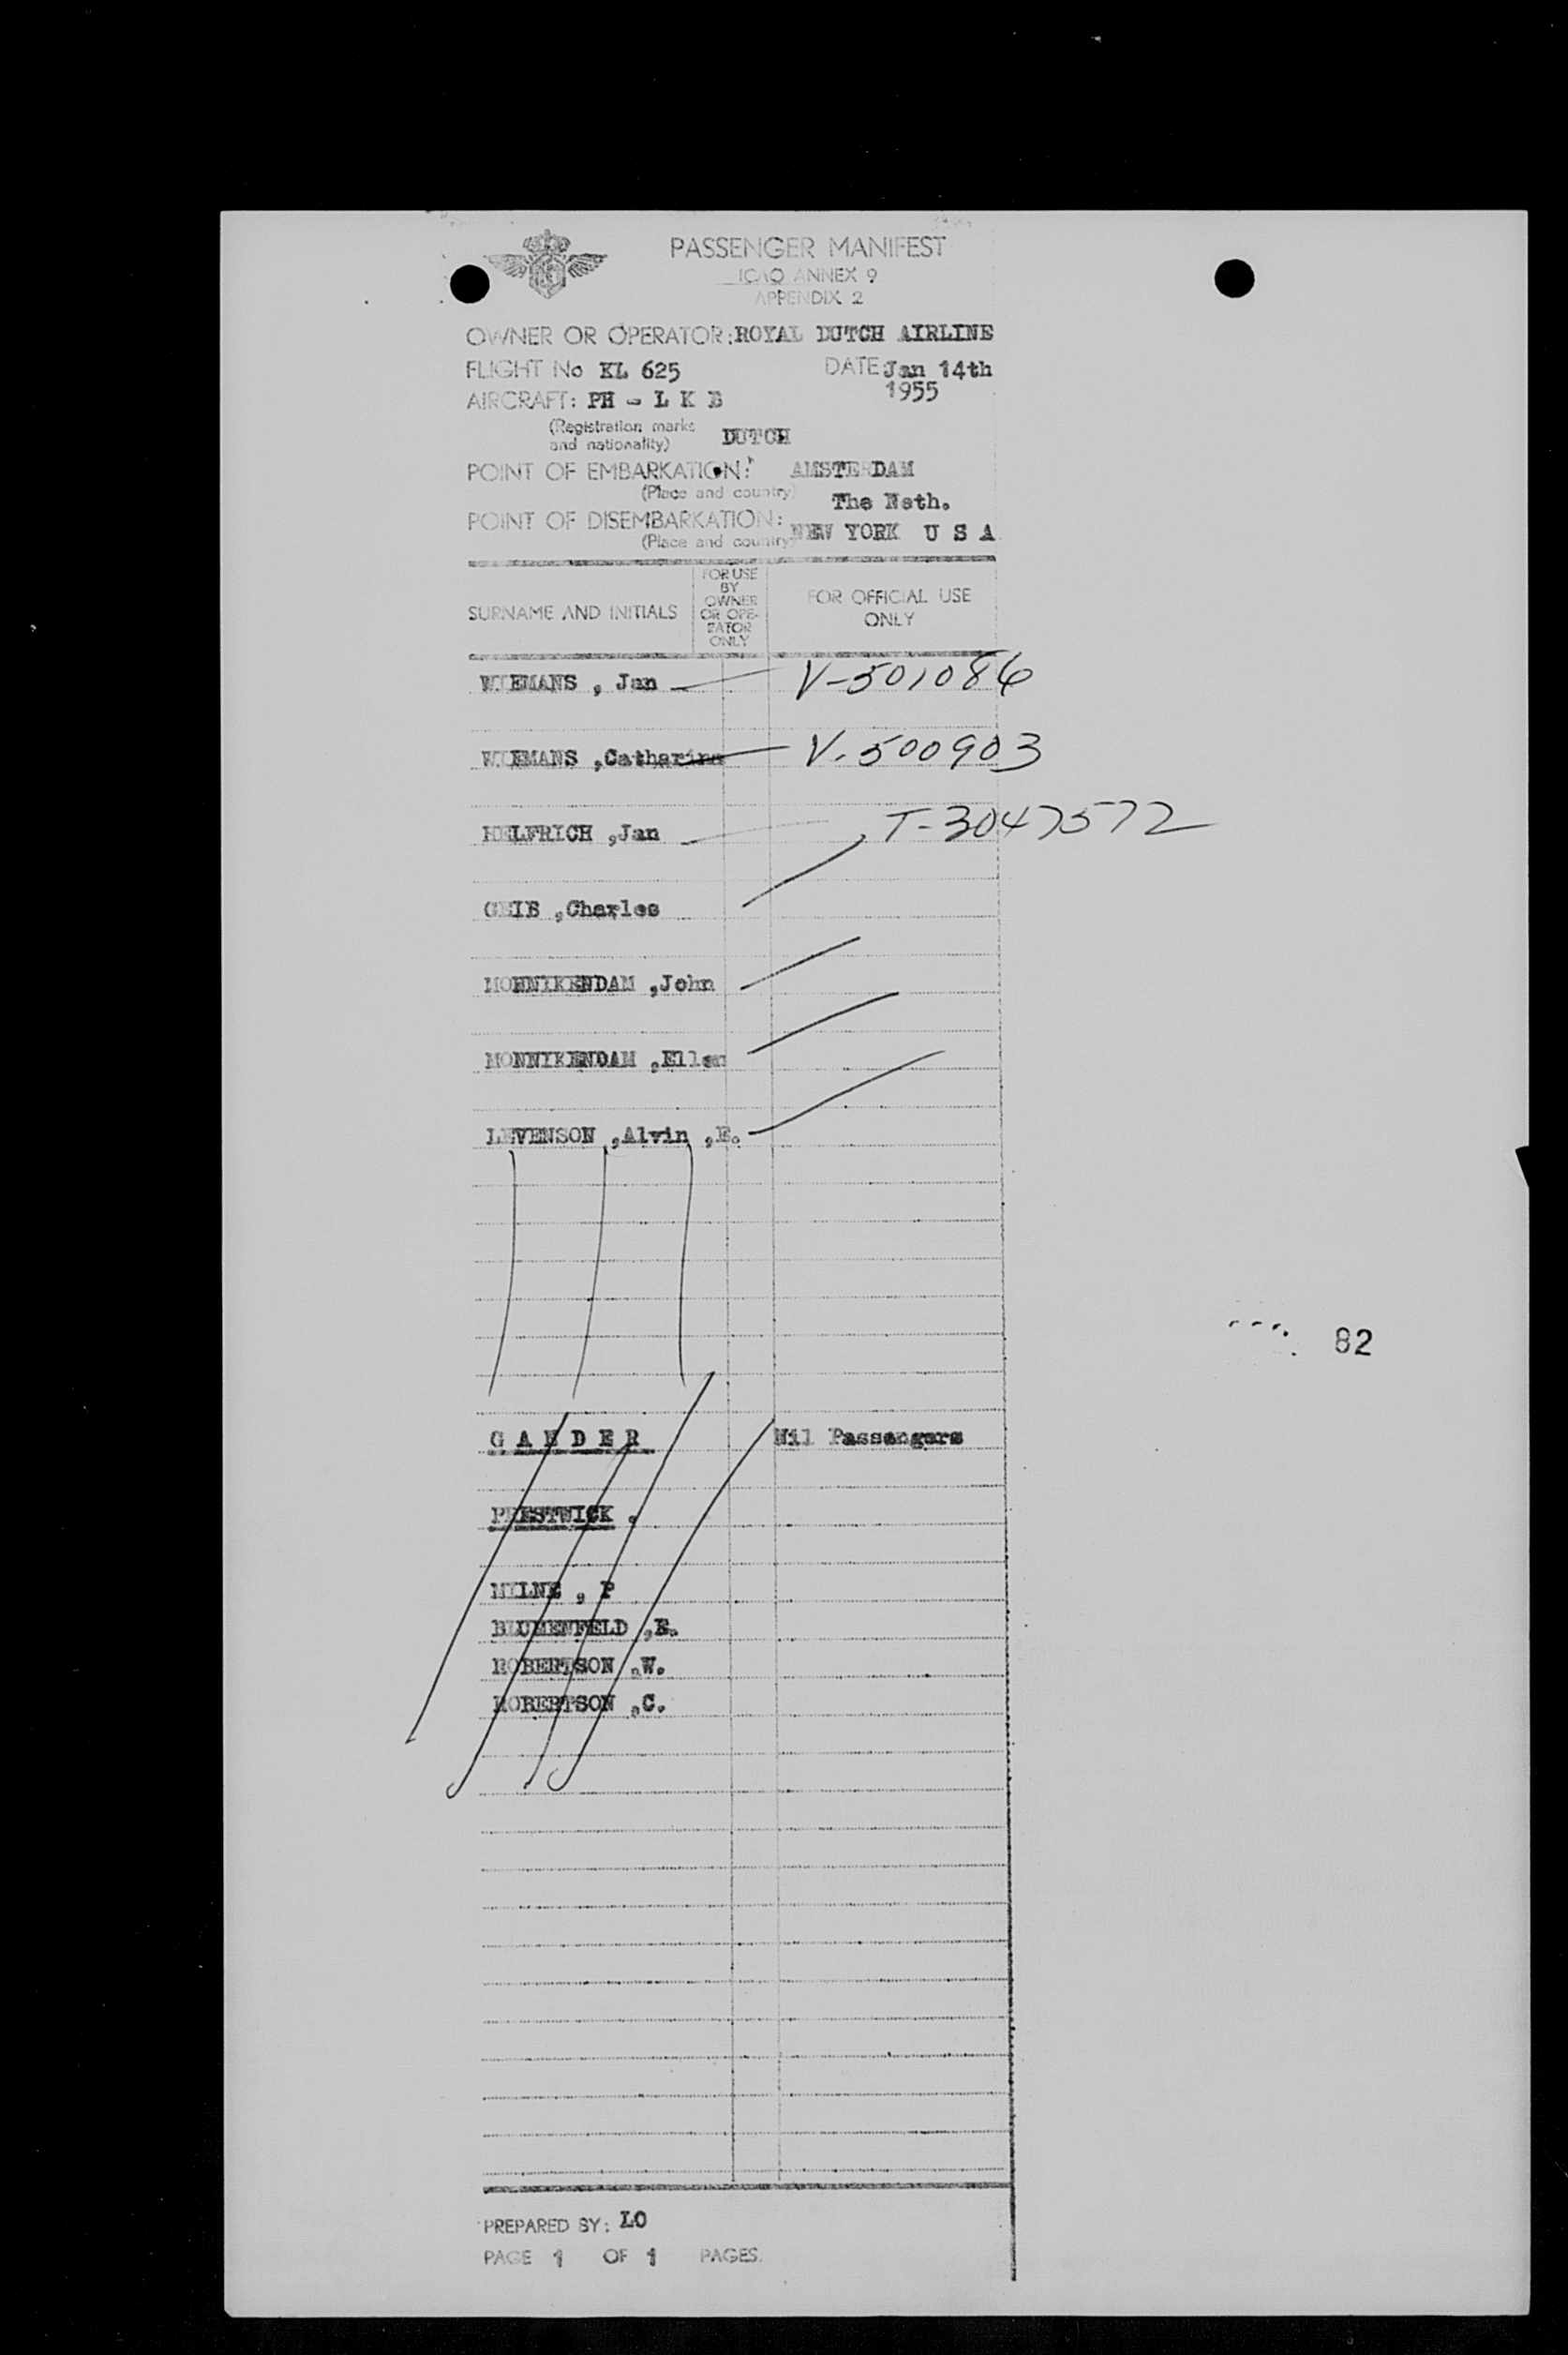 PASSENGER MANIFEST
ICAO ANNEX 9
APPENDIX 2
OWNER OR OPERATOR: ROYAL DUTCH AIRLINE
FLIGHT No KL 625 DATE: Jan 14th
1955
AIRCRAFT: PH - L K B
(Registration marks
and nationality) DUTCH
POINT OF EMBARKATION: AMSTERDAM
(Place and country) The Neth.
POINT OF DISEMBARKATION: NEW YORK U S A
(Place and country)
SURNAME AND INITIALS
FOR USE
BY
OWNER
OR OPE-
RATOR
ONLY
FOR OFFICIAL USE
ONLY
WIEMANS , Jan V-501086
WIEMANS ,Catharina V-500903
HELFRICH ,Jan T-3047572
GEIB ,Charles
MONNIKENDAM ,John
MONNIKENDAM ,Ellen
LEVENSON ,Alvin ,E.
82
G A N D E R Nil Passengers
PRESTWICK .
MILNE , P
BLUMENFELD ,E.
ROBERTSON ,W.
ROBERTSON ,C.
PREPARED BY: LO
PAGE 1 OF 1 PAGES.